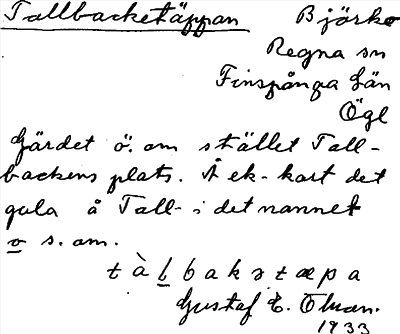 Tallbacketäppan Björke
Regna sn
Finspånga län
Ögl
Gärdet ö. om stället Tall-
backens plats. Å ek-kart det
gula å Tall- i det namnet
o s. om.
tàlbakətæpa
Gustaf E. Ohman.
1933